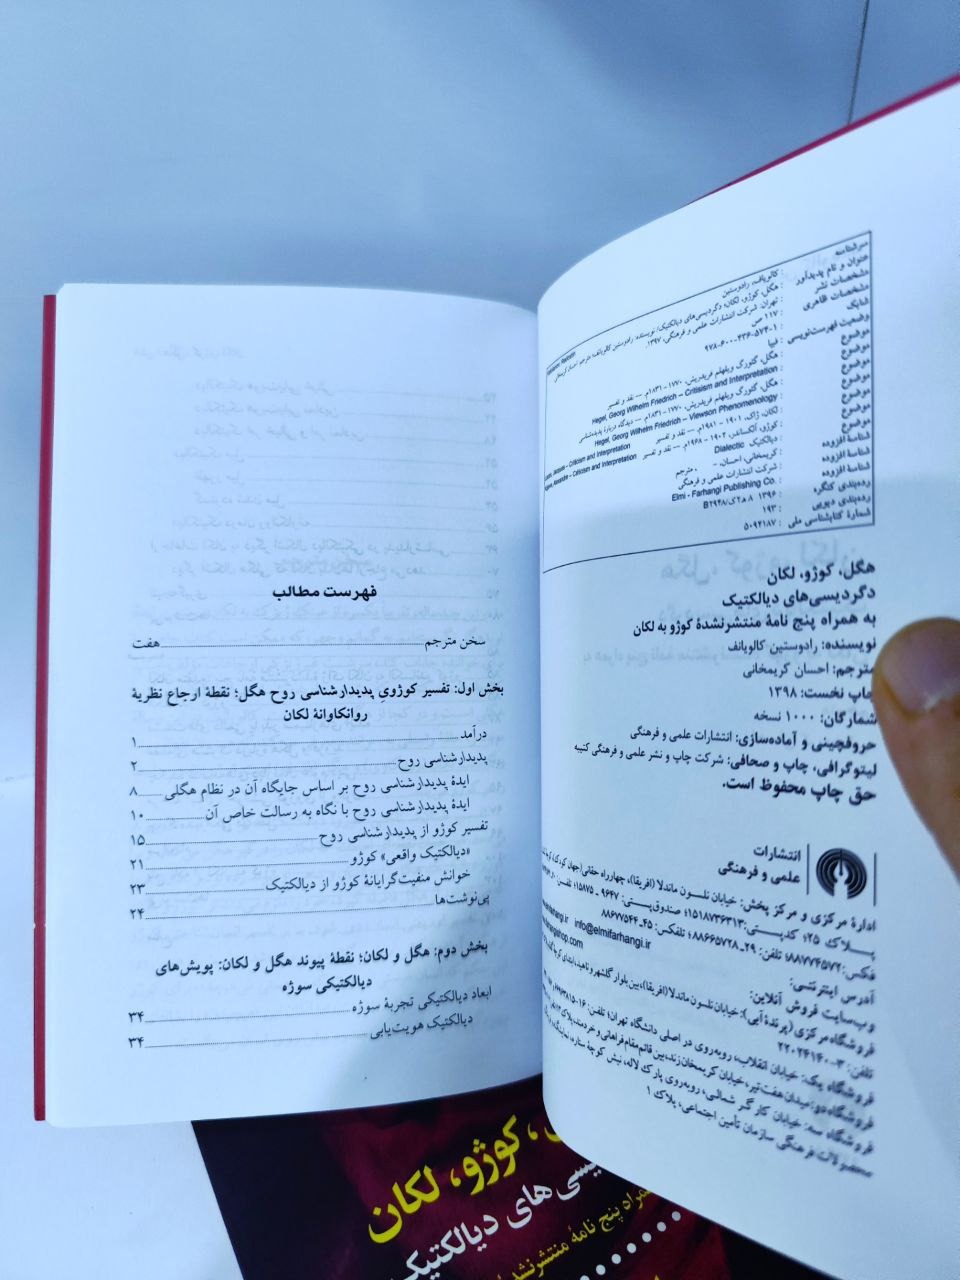 سرشناسه : کالویانف، رادوستین
عنوان و نام پدیدآور : هگل، کوژو، لکان: دگردیسی‌های دیالکتیک/ نویسنده رادوستین کالویانف؛ مترجم احسان کریمخانی
مشخصات نشر : تهران: شرکت انتشارات علمی و فرهنگی، ۱۳۹۷.
مشخصات ظاهری : ۱۱۷ ص
شابک : ۹۷۸-۶۰۰-۴۳۶-۵۷۴-۱
وضعیت فهرست‌نویسی : فیپا
موضوع : هگل، گئورگ ویلهلم فریدریش، ۱۷۷۰-۱۸۳۱م. -- نقد و تفسیر
موضوع : Hegel, Georg Wilhelm Friedrich – Critisism and Interpretation
موضوع : هگل، گئورگ ویلهلم فریدریش، ۱۷۷۰-۱۸۳۱م. -- دیدگاه درباره پدیده‌شناسی
موضوع : Hegel, Georg Wilhelm Friedrich – Viewson Phenomenology
موضوع : لکان، ژاک، ۱۹۰۱-۱۹۸۱م. -- نقد و تفسیر
Jacques - Criticism and Interpretation
موضوع : کوژو، آلکساندر، ۱۹۰۲-۱۹۶۸م. -- نقد و تفسیر
Alexandre – Criticism and Interpretation
موضوع : دیالکتیک Dialectic
شناسه افزوده : کریمخانی، احسان، - ، مترجم
شناسه افزوده : شرکت انتشارات علمی و فرهنگی
شناسه افزوده : Elmi - Farhangi Publishing Co.
رده‌بندی کنگره : ۱۳۹۶ ۸ه۲ک/B۲۹۴۸
رده‌بندی دیویی : ۱۹۳
شماره کتابشناسی ملی : ۵۰۹۲۱۸۷
هگل، کوژو، لکان
دگردیسی‌های دیالکتیک
به همراه پنج نامهٔ منتشرنشدهٔ کوژو به لکان
نویسنده: رادوستین کالویانف
مترجم: احسان کریمخانی
چاپ نخست: ۱۳۹۸
شمارگان: ۱۰۰۰ نسخه
حروفچینی و آماده‌سازی: انتشارات علمی و فرهنگی
لیتوگرافی، چاپ و صحافی: شرکت چاپ و نشر علمی و فرهنگی کتیبه
حق چاپ محفوظ است.
انتشارات
علمی و فرهنگی
ادارهٔ مرکزی و مرکز پخش: خیابان نلسون ماندلا (افریقا)، چهارراه حقانی (جهان کودک)، کوچهٔ
پلاک ۲۵؛ کدپستی: ۱۵۱۸۷۳۶۳۱۳؛ صندوق پستی: ۹۶۴۷-۱۵۸۷۵؛ تلفن:
فکس: ۸۸۷۷۴۵۷۲؛ تلفن: ۲۹-۸۸۶۶۵۷۲۸؛ تلفکس: ۴۵-۸۸۶۷۷۵۴۴
آدرس اینترنتی: info@elmifarhangi.ir
وب‌سایت فروش آنلاین:
فروشگاه مرکزی (پرندهٔ آبی): خیابان نلسون ماندلا (افریقا)، بین بلوار گلشهر و ناهید،
تلفن: ۳-۲۲۰۲۴۱۴۰
فروشگاه یک: خیابان انقلاب، روبه‌روی در اصلی دانشگاه تهران؛ تلفن:
فروشگاه دو: میدان هفت‌تیر، خیابان کریمخان زند، بین قائم‌مقام فراهانی و خردمند، پلاک
فروشگاه سه: خیابان کارگر شمالی، روبه‌روی پارک لاله، نبش کوچهٔ ستاره،
محصولات فرهنگی سازمان تأمین اجتماعی، پلاک ۱
فهرست مطالب
سخن مترجم هفت
بخش اول: تفسیر کوژویِ پدیدارشناسی روح هگل؛ نقطهٔ ارجاع نظریهٔ
روانکاوانهٔ لکان
درآمد ۱
پدیدارشناسی روح ۲
ایدهٔ پدیدارشناسی روح بر اساس جایگاه آن در نظام هگلی ۸
ایدهٔ پدیدارشناسی روح با نگاه به رسالت خاص آن ۱۰
تفسیر کوژو از پدیدارشناسی روح ۱۵
«دیالکتیک واقعی» کوژو ۲۱
خوانش منفیت‌گرایانهٔ کوژو از دیالکتیک ۲۳
پی‌نوشت‌ها ۲۴
بخش دوم: هگل و لکان؛ نقطهٔ پیوند هگل و لکان: پویش‌های
دیالکتیکی سوژه
ابعاد دیالکتیکی تجربهٔ سوژه ۳۴
دیالکتیک هویت‌یابی ۳۴
کوژو، لکان
دیسی‌های دیالکتیک
همراه پنج نامهٔ منتشرنشد